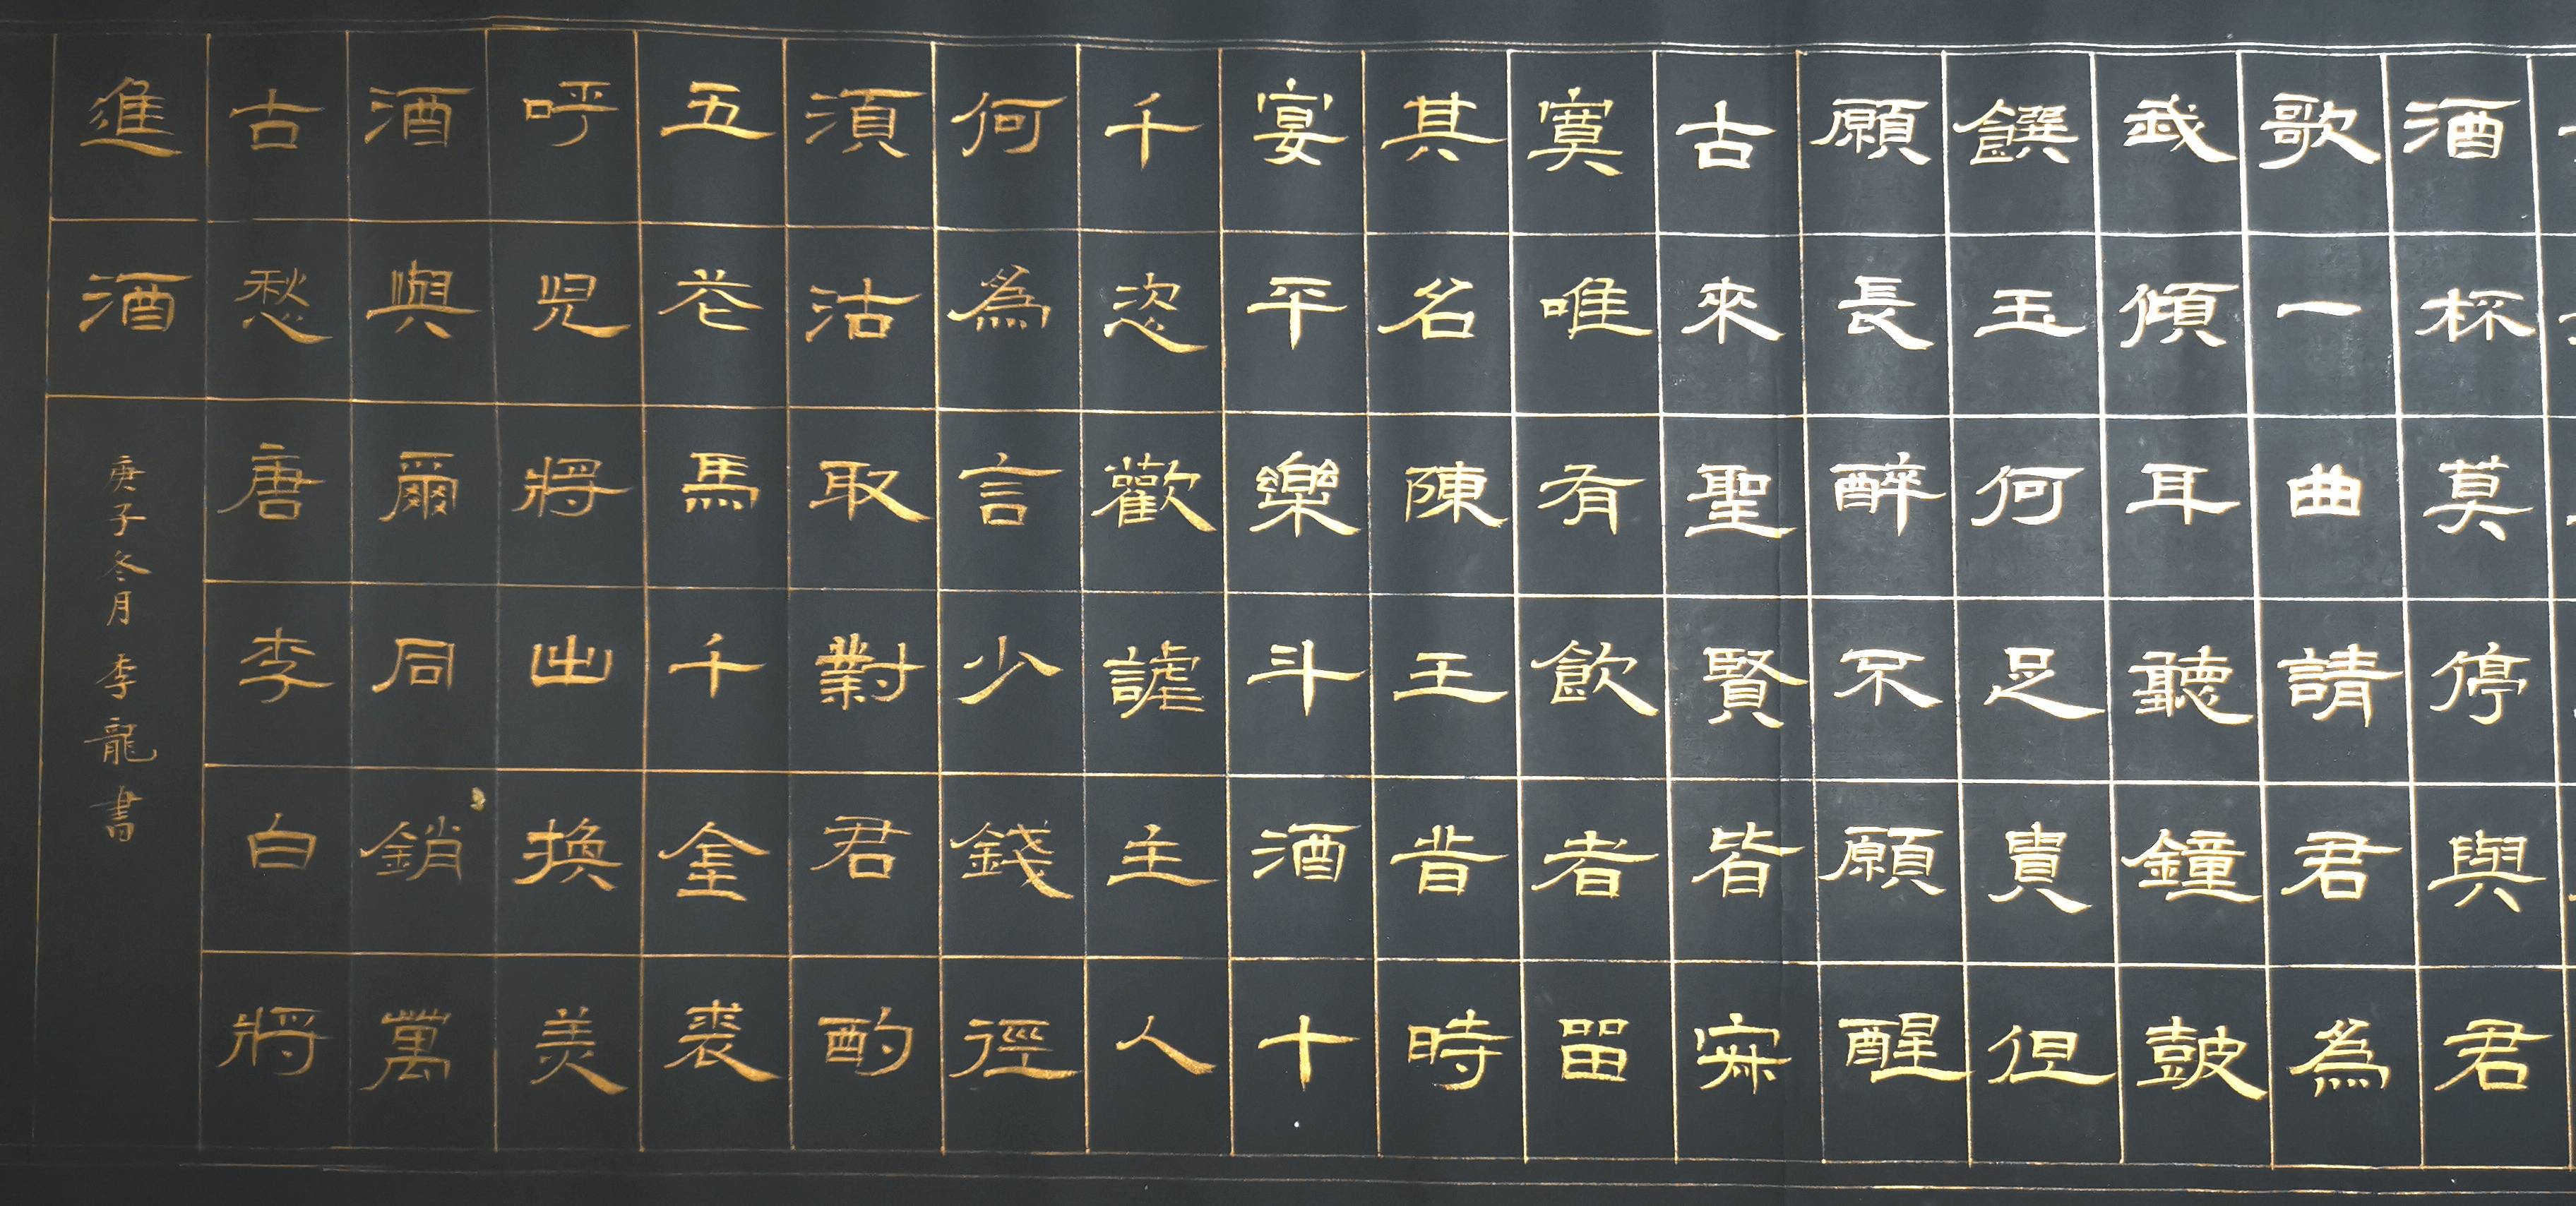 酒杯莫停與君
歌一曲請君為
我傾耳聽鐘鼓
饌玉何足貴但
願長醉不願醒
古來聖賢皆寂
寞唯有飲者留
其名陳王昔時
宴平樂斗酒十
千恣歡謔主人
何為言少錢徑
須沽取對君酌
五花馬千金裘
呼兒將出換美
酒與爾同銷萬
古愁唐李白將
進酒
庚子冬月李龍書